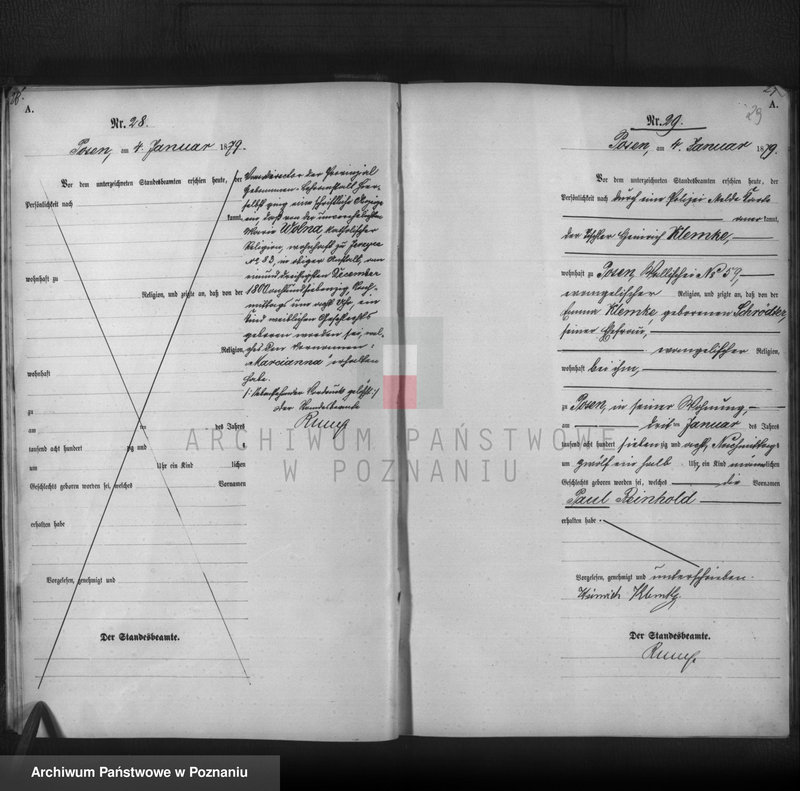 28.
A.
Nr. 28.
Posen, am 4. Januar 1879.
Vor dem unterzeichneten Standesbeamten erschien heute, der
Persönlichkeit nach
kannt,
wohnhaft zu
Religion, und zeigte an, daß von der
Religion,
wohnhaft
zu
am ten des Jahres
tausend acht hundert zig und
um Uhr ein Kind lichen
Geschlechts geboren worden sei, welches Vornamen
erhalten habe
Vorgelesen, genehmigt und
Der Standesbeamte.
Vom Director der Provinzial
Hebammen-Lehranstalt hier-
selbst ging eine schriftliche Anzeige
ein, daß von der unverehelichten
Maria Wolna, katholischer
Religion, wohnhaft zu
No. 83, in obiger Anstalt, am
einunddreißigsten Dezember
1800 achtundsiebenzig, Nach-
mittags um acht Uhr, ein
Kind weiblichen Geschlechts
geboren worden sei, wel-
ches den Vornamen:
„Marcianna“ erhalten
habe.
/: Vorstehender Vordruck gelöscht :/
Der Standesbeamte
29
A.
Nr. 29.
Posen, am 4. Januar 1879.
Vor dem unterzeichneten Standesbeamten erschien heute, der
Persönlichkeit nach durch eine Polizei Melde Karte
aner kannt,
der Tischler Heinrich Klemke,
wohnhaft zu Posen, Wallischei No 59,
evangelischer Religion, und zeigte an, daß von der
Emma Klemke geborenen Schrödter,
seiner Ehefrau,
evangelischer Religion,
wohnhaft bei ihm,
zu Posen, in seiner Wohnung,
am ten Januar des Jahres
tausend acht hundert sieben zig und acht, Nachmittags
um zwölf ein halb Uhr, ein Kind männlichen
Geschlechts geboren worden sei, welches die Vornamen
Paul Reinhold
erhalten habe.
Vorgelesen, genehmigt und unterschrieben.
Heinrich Klemke
Der Standesbeamte.
ARCHIWUM PAŃSTWOWE
W POZNANIU
Archiwum Państwowe w Poznaniu